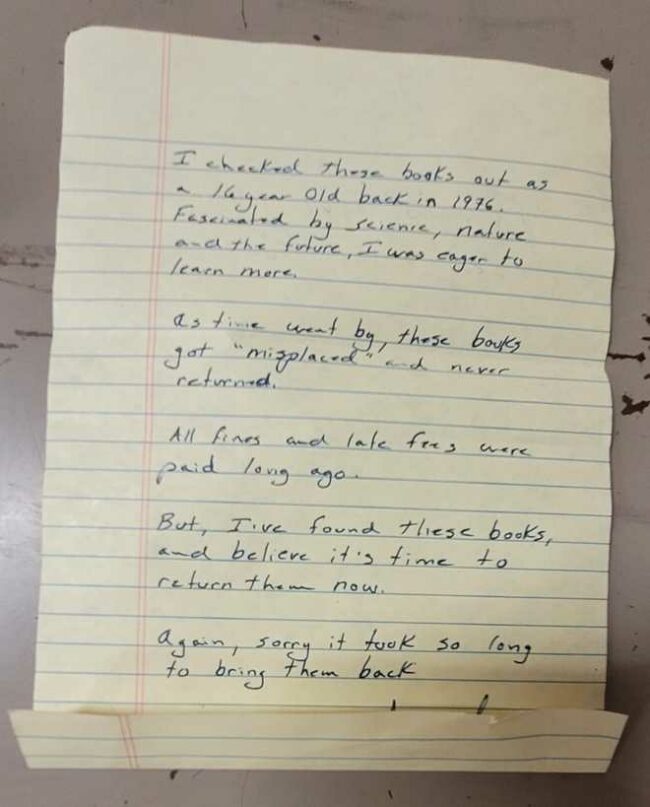 I checked these books out as
a 16 year old back in 1976.
Fascinated by science, nature
and the future, I was eager to
learn more.
As time went by, these books
got "misplaced" and never
returned.
All fines and late fees were
paid long ago.
But, I've found these books,
and believe it's time to
return them now.
Again, sorry it took so long
to bring them back